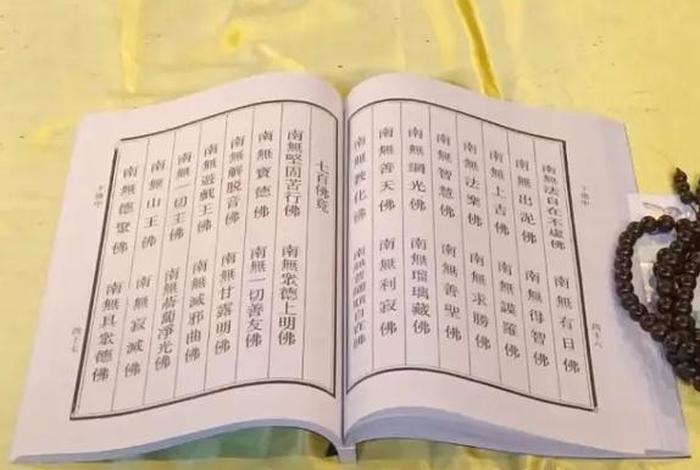 千佛中 四十六
南無法自在不虛佛 南無有日佛
南無出泥佛 南無得智佛
南無上吉佛 南無謨羅佛
南無法樂佛 南無求勝佛
南無智慧佛 南無善聖佛
南無網光佛 南無瑠璃藏佛
南無善天佛 南無利寂佛
南無教化佛 南無普隨順自在佛
七百佛竟
南無堅固苦行佛 南無衆德上明佛
南無寶德佛 南無一切善友佛
南無解脫音佛 南無甘露明佛
南無遊戲王佛 南無滅邪曲佛
南無一切主佛 南無薝蔔淨光佛
南無山王佛 南無寂滅佛
南無德聚佛 南無具衆德佛
千佛中 四十七